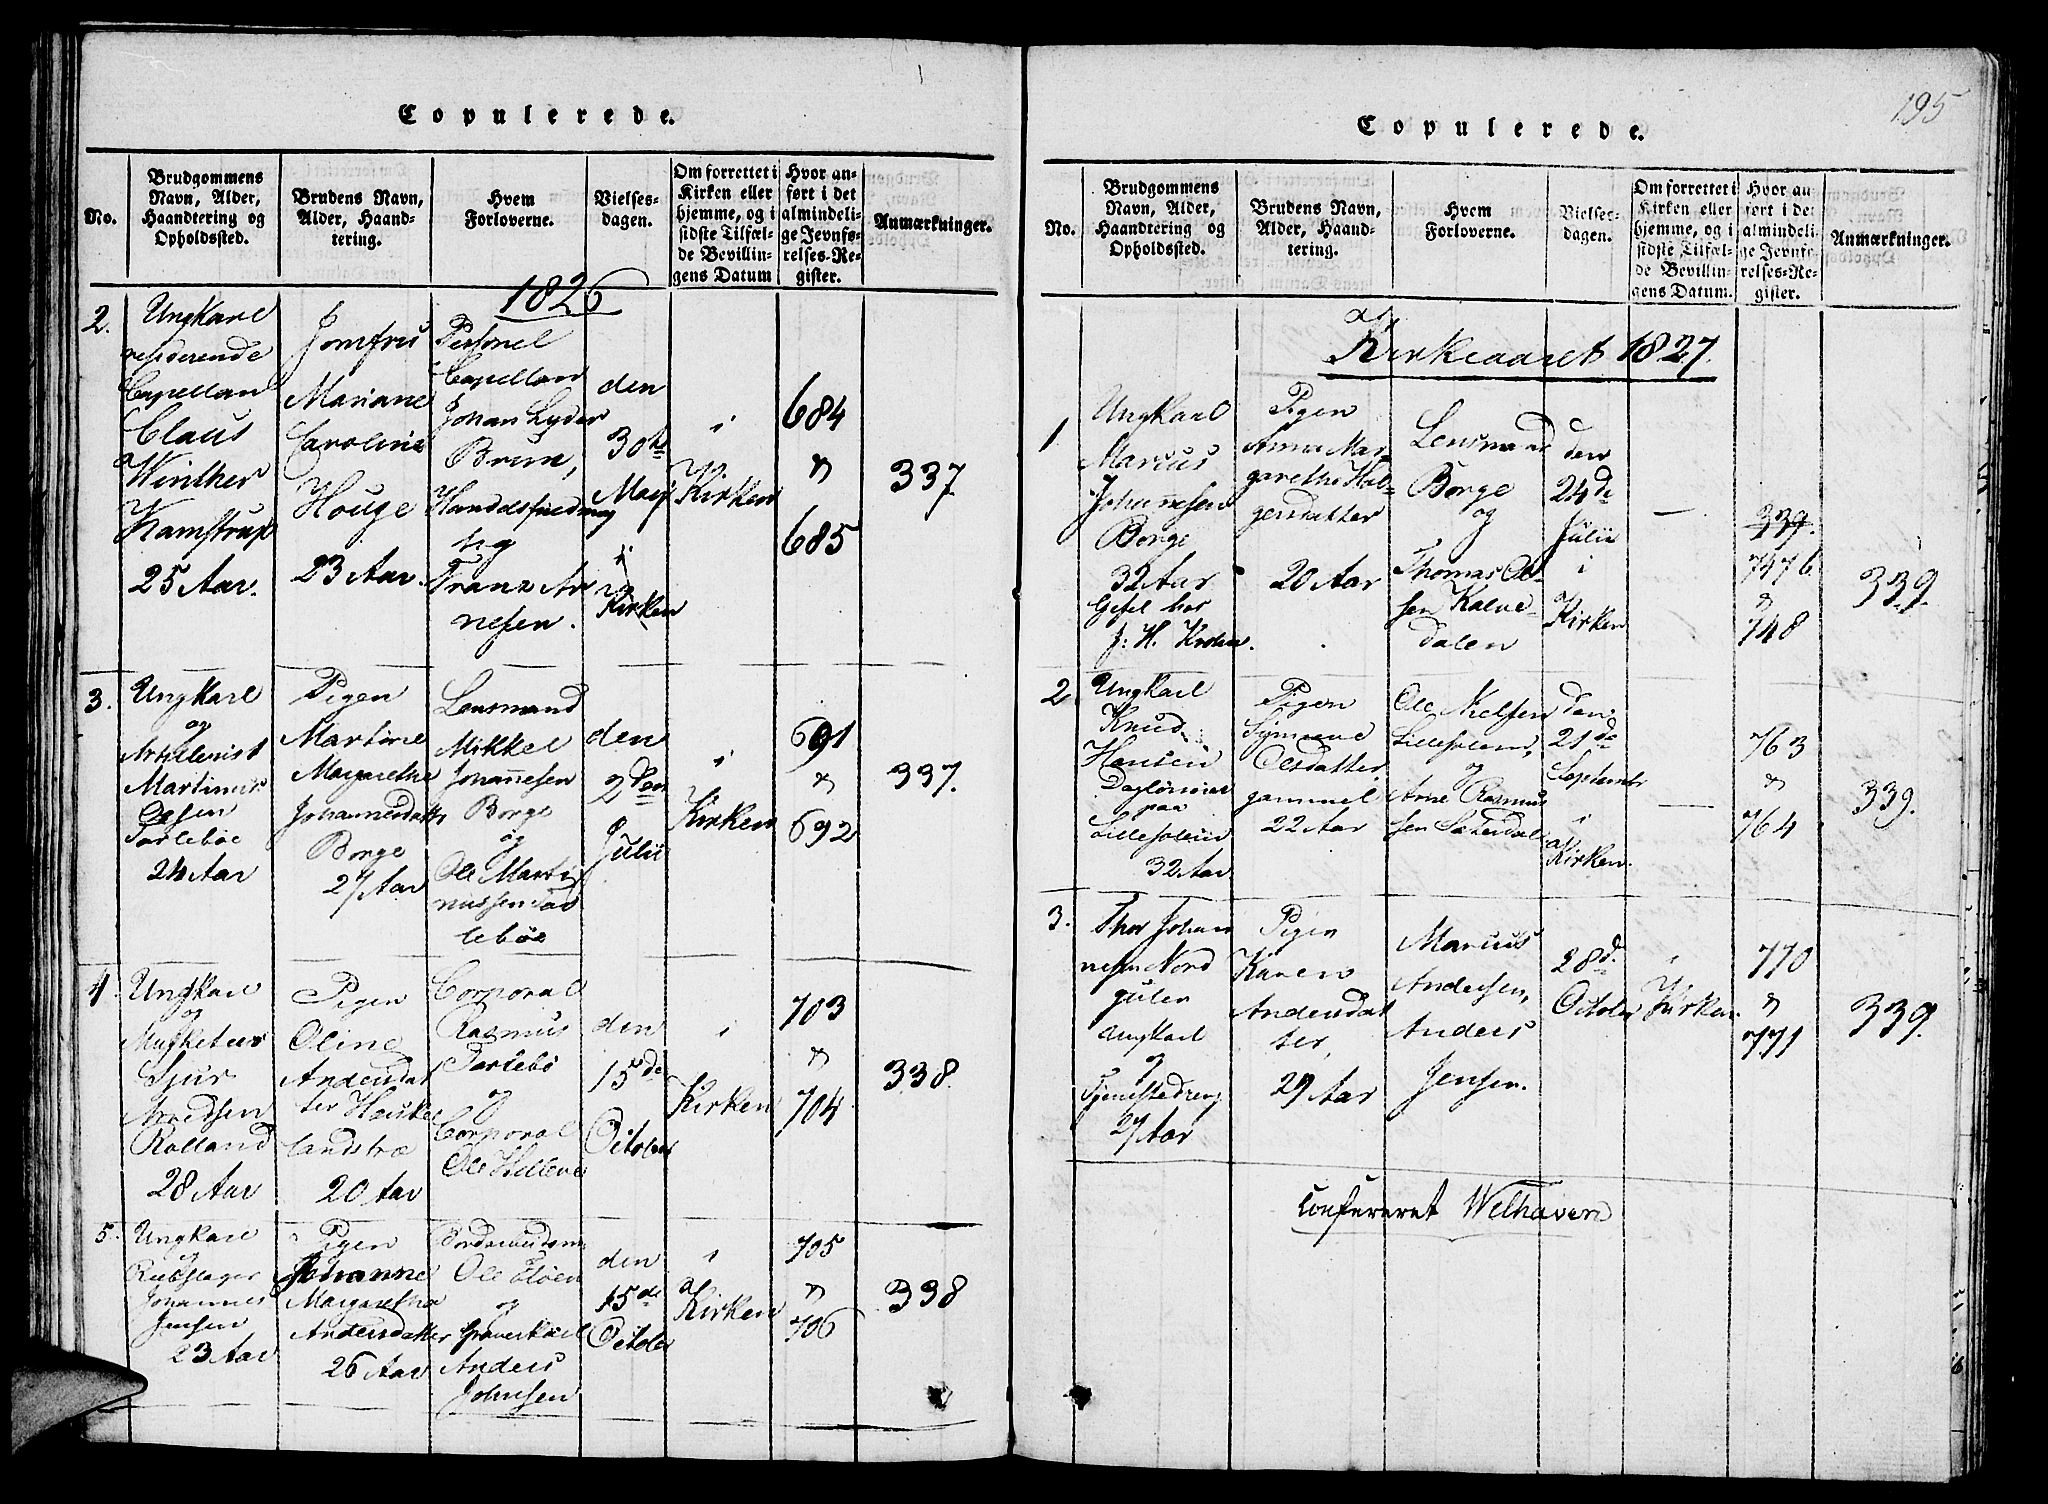 Copulerede.
No.
Brudgommens Navn, Alder, Haandtering og Opholdssted.
Brudens Navn, Alder, Haandtering.
Hvem Forloverne.
Vielsesdagen.
Om forrettet i Kirken eller hjemme, og i sidste Tilfælde Bevillingens Datum
Hvor anført i det almindelige Jevnførelses-Register.
Anmærkninger.
1826
2.
Ungkarl
residerende
Capellan
Claus
Winther
Kamstrup
25 Aar.
Jomfru
Mariane
Caroline
Houge
23 Aar.
Personel
Capellan
Johan Lyder
Brun,
og
Franz Ar
nesen.
den
30te
May
i
Kirken
i
Kirken
684
&
685
337
3.
Ungkarl
og
Artillerist
Martinus
Olsen
Tarlebøe
24 Aar
Pigen
Martine
Margarethe
Johannesdatter
Borge
27 Aar
Lensmand
Mikkel
Johannesen
Borge
og
Ole Marti
nussen Tar
lebøe
den
2den
Julii
i
Kirken
691
&
692
337.
4.
Ungkarl
og
Musketeer
Sjur
Arnesen
Rolland
28 Aar
Pigen
Oline
Andersdat
ter Houke
landstræ
20 Aar
Corporal
Rasmus
Tarlebø
og
Corporal
Ole Hilleve
den
15de
October
i
Kirken
703
&
704
338.
5.
Ungkarl
og
Rebslager
Johannes
Jensen
23 Aar
Pigen
Johanne
Margarethe
Andersdatter
26 Aar
Ole
og
Anders
Johnsen
den
15de
October
i
Kirken
705
&
706
338
195
Copulerede.
No.
Brudgommens Navn, Alder, Haandtering og Opholdssted.
Brudens Navn, Alder, Haandtering.
Hvem Forloverne.
Vielsesdagen.
Om forrettet i Kirken eller hjemme, og i sidste Tilfælde Bevillingens Datum.
Hvor anført i det almindelige Jevnførelses-Register.
Anmærkninger.
Kirkeaaret 1827.
1.
Ungkarl
Marcus
Johannesen
Borge
32 Aar
J. H. Krohn.
Pigen
Anne Mar-
garethe Hal-
gersdatter
20 Aar
Lensmand
Borge
og
Thomas Ol-
sen Kalve-
dalen
den
24de
Julii
i
Kirken
339.
747 6.
&
748
339.
2
Ungkarl
Knud
Hansen
Dagleiner
paa
32 Aar
Pigen
Synneve
Olsdatter,
gammel
22 Aar
Ole Nielsen
og
Arne Rasmus
sen
den
21de
Septemb
i
Kirken.
763
&
764
339.
3.
Thor Johan
nesen Nord
gulen
ungkarl
og
Tjenestedreng
27 Aar
Pigen
Karen
Andersdat
ter,
29 Aar
Marcus
Andersen,
Anders
Jensen.
28d.
October
i
Kirken
770
&
771
339.
Confereret Welhaven